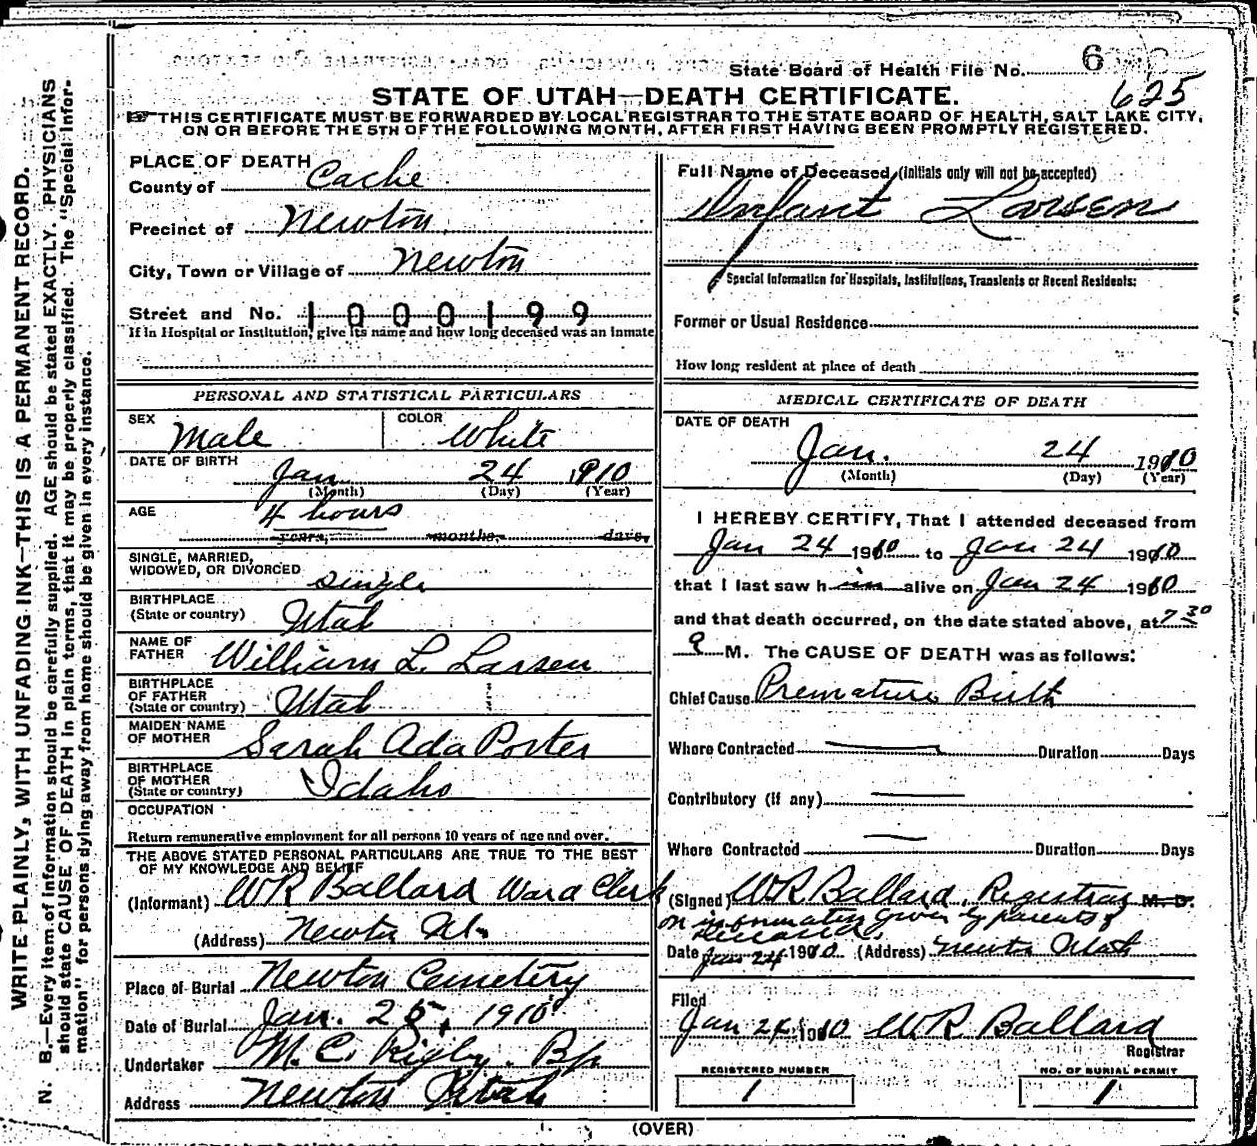 WRITE PLAINLY, WITH UNFADING INK—THIS IS A PERMANENT RECORD.
N. B.—Every item of information should be carefully supplied. AGE should be stated EXACTLY. PHYSICIANS
should state CAUSE OF DEATH in plain terms, that it may be properly classified. The "Special Infor-
mation" for persons dying away from home should be given in every instance.
State Board of Health File No. 6
625
STATE OF UTAH—DEATH CERTIFICATE.
☞ THIS CERTIFICATE MUST BE FORWARDED BY LOCAL REGISTRAR TO THE STATE BOARD OF HEALTH, SALT LAKE CITY,
ON OR BEFORE THE 5TH OF THE FOLLOWING MONTH, AFTER FIRST HAVING BEEN PROMPTLY REGISTERED.
PLACE OF DEATH
County of Cache
Precinct of Newton
City, Town or Village of Newton
Street and No. 1000199
If in Hospital or Institution, give its name and how long deceased was an inmate
PERSONAL AND STATISTICAL PARTICULARS
SEX Male COLOR White
DATE OF BIRTH Jan 24 1910
(Month) (Day) (Year)
AGE 4 hours
years, months, days.
SINGLE, MARRIED,
WIDOWED, OR DIVORCED single
BIRTHPLACE
(State or country) Utah
NAME OF
FATHER William L. Larsen
BIRTHPLACE
OF FATHER
(State or country) Utah
MAIDEN NAME
OF MOTHER Sarah Ada Porter
BIRTHPLACE
OF MOTHER
(State or country) Idaho
OCCUPATION
Return remunerative employment for all persons 10 years of age and over.
THE ABOVE STATED PERSONAL PARTICULARS ARE TRUE TO THE BEST
OF MY KNOWLEDGE AND BELIEF
(Informant) WR Ballard Ward Clerk
(Address) Newton Ut.
Place of Burial Newton Cemetery
Date of Burial Jan. 25, 1910
Undertaker M. C. Rigby. Bp
Address Newton Utah
Full Name of Deceased (initials only will not be accepted)
Infant Larsen
Special Information for Hospitals, Institutions, Transients or Recent Residents:
Former or Usual Residence
How long resident at place of death
MEDICAL CERTIFICATE OF DEATH
DATE OF DEATH
Jan. 24 1910
(Month) (Day) (Year)
I HEREBY CERTIFY, That I attended deceased from
Jan 24 1910 to Jan 24 1910
that I last saw h im alive on Jan 24 1910
and that death occurred, on the date stated above, at 7 30
M. The CAUSE OF DEATH was as follows:
Chief Cause Premature Birth
Where Contracted Duration Days
Contributory (if any)
Where Contracted Duration Days
(Signed) WR Ballard, Registrar M. D.
on information given by parents of
deceased.
Date Jan 24 1910 (Address) Newton Utah
Filed
Jan 24 1910 WR Ballard
Registrar
REGISTERED NUMBER
1
NO. OF BURIAL PERMIT
1
(OVER)